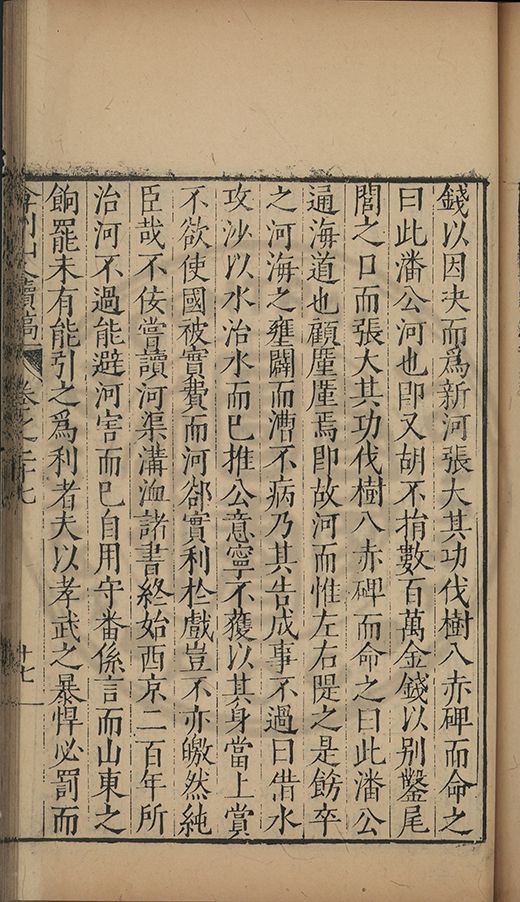 錢以因決而爲新河張大其功伐樹八赤碑而命之
曰此潘公河也卽又胡不捐數百萬金錢以别鑿尾
閭之口而張大其功伐樹八赤碑而命之曰此潘公
通海道也顧廑廑焉卽故河而惟左右隄之是飭卒
之河海之壅闢而漕不病乃其告成事不過曰借水
攻沙以水治水而已推公意寧不獲以其身當上賞
不欲使國被實費而河郤實利於戲豈不亦皦然純
臣哉不佞嘗讀河渠溝洫諸書終始西京二百年所
治河不過能避河害而已自用守番係言而山東之
餉罷未有能引之爲利者夫以孝武之暴悍必罰而
弇州山人續稿 卷之二十七 廿七